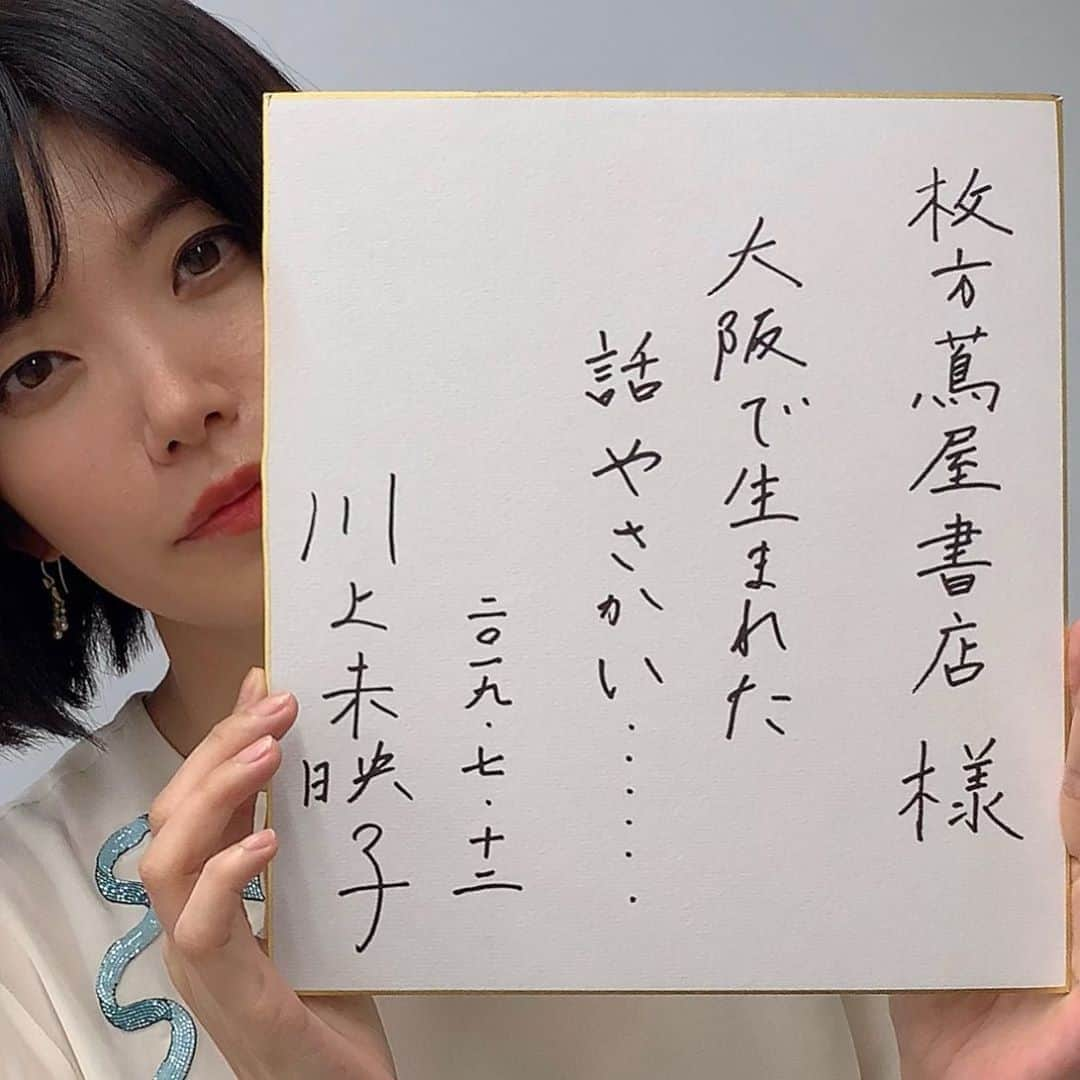 枚方蔦屋書店 様
大阪で生まれた
話 やさかい.......
二〇一九.七.十二
川上未映子